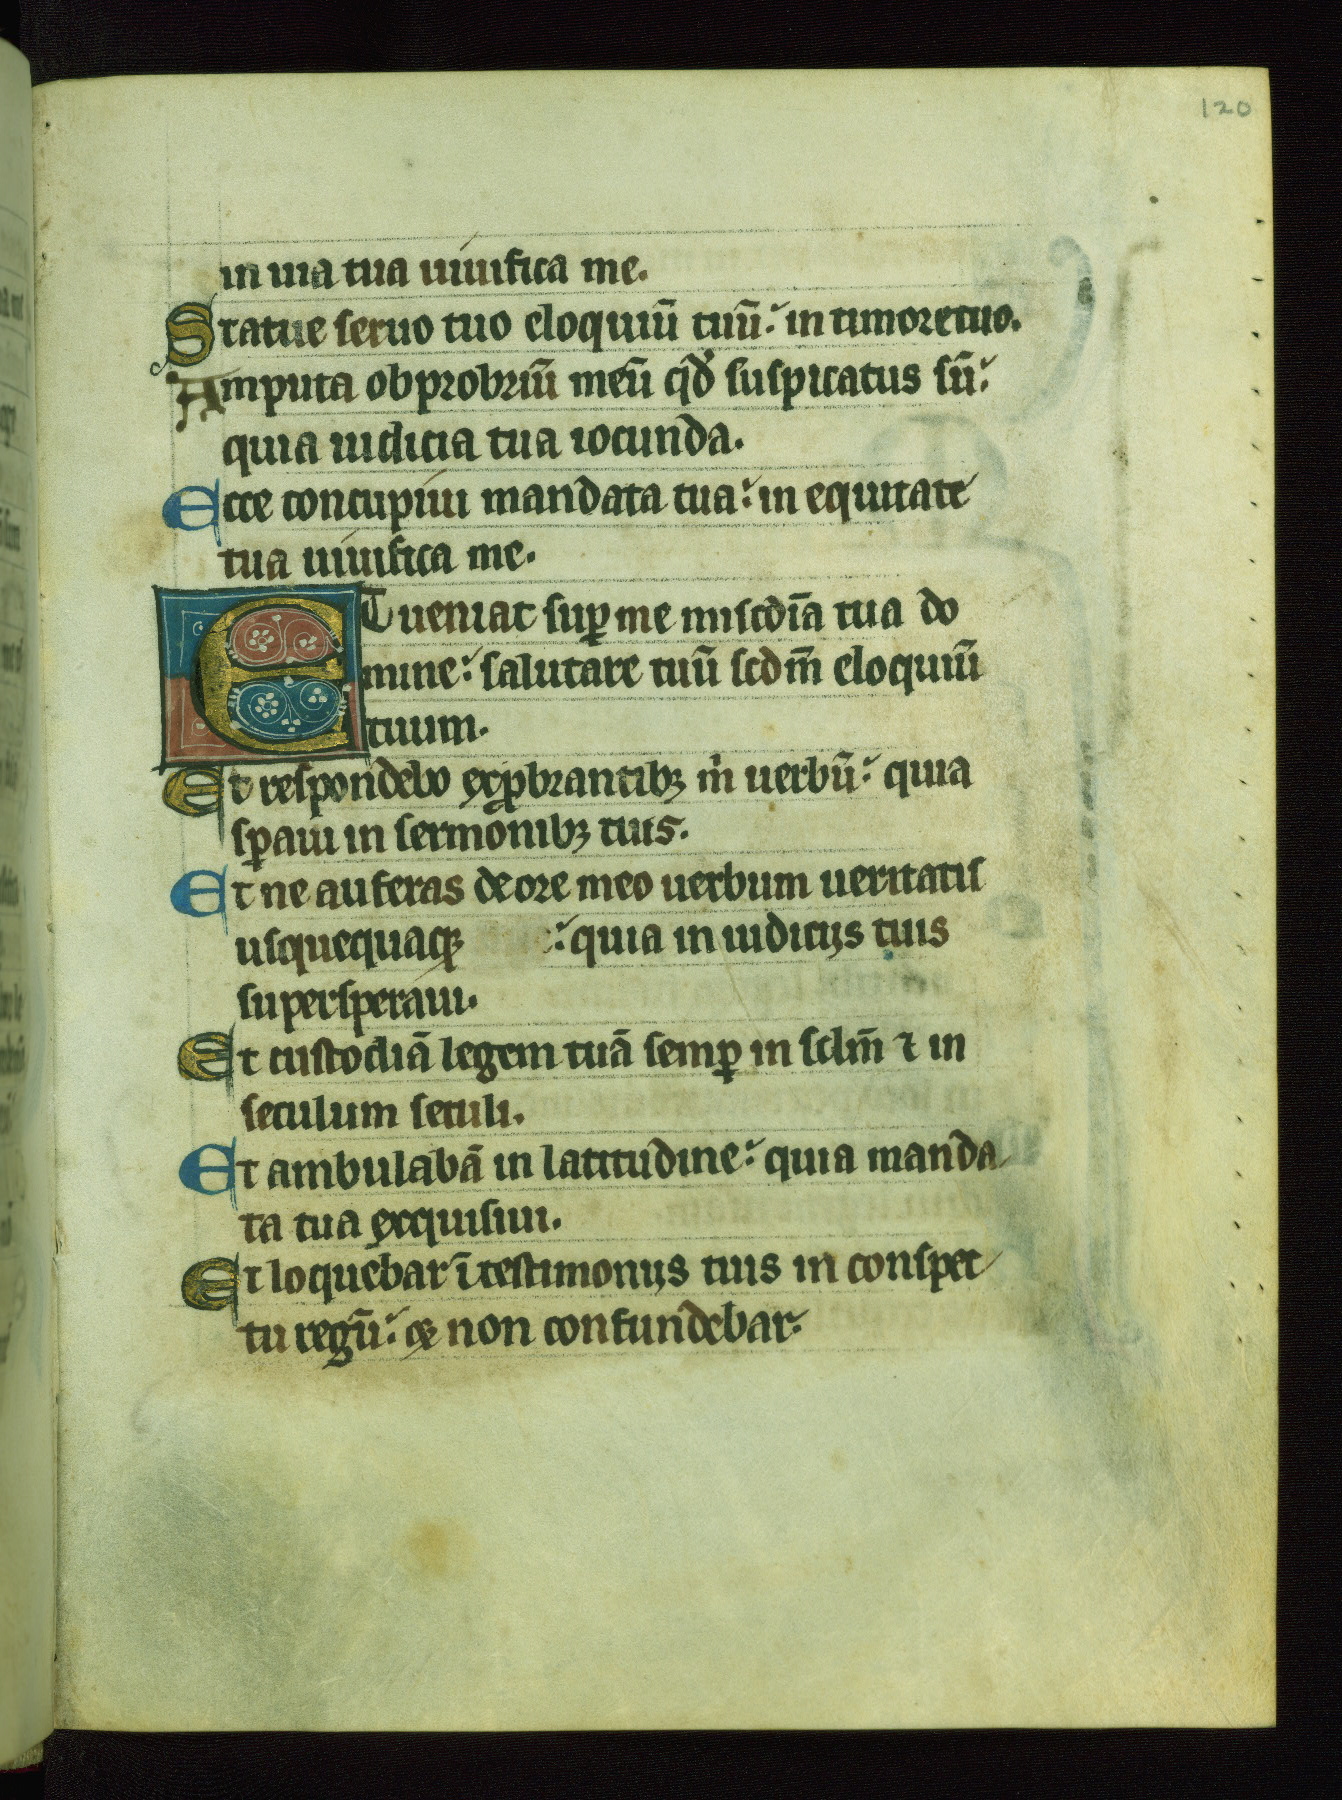 120
in uia tua uiuifica me.
Statue seruo tuo eloquiū tuū: in timore tuo.
Amputa obprobriū meū qđ suspicatus sū:
quia iudicia tua iocunda.
Ecce concupiui mandata tua: in equitate
tua uiuifica me.
ET ueniat suꝑ me miscdīa tua do
mine: salutare tuū scdm̄ eloquiū
tuum.
Et respondebo exꝓbrantibꝫ m̄ uerbū: quia
sꝑaui in sermonibꝫ tuis.
Et ne auferas de ore meo uerbum ueritatis
usquequaqꝫ : quia in iudicijs tuis
supersperaui.
Et custodiā legem tuā semꝑ in sclm̄ ⁊ in
seculum seculi.
Et ambulabā in latitudine: quia manda
ta tua exquisiui.
Et loquebar ī testimonijs tuis in conspec
tu regū: ⁊ non confundebar.